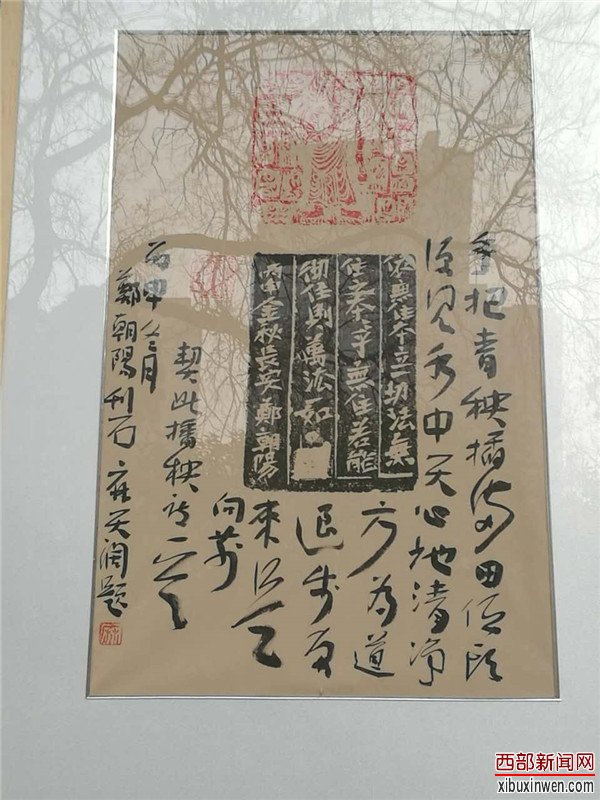 手把青秧插满田低头
便见水中天心地清净
方为道
退步原
来是
向前
契此插秧诗一首
丙申冬月
鄭朝陽刊石 天阔题
無住本立一切法無
住之本乎無住若能
徹住則萬法一如
丙申金秋長安鄭朝陽
西部新闻网
xibuxinwen.com